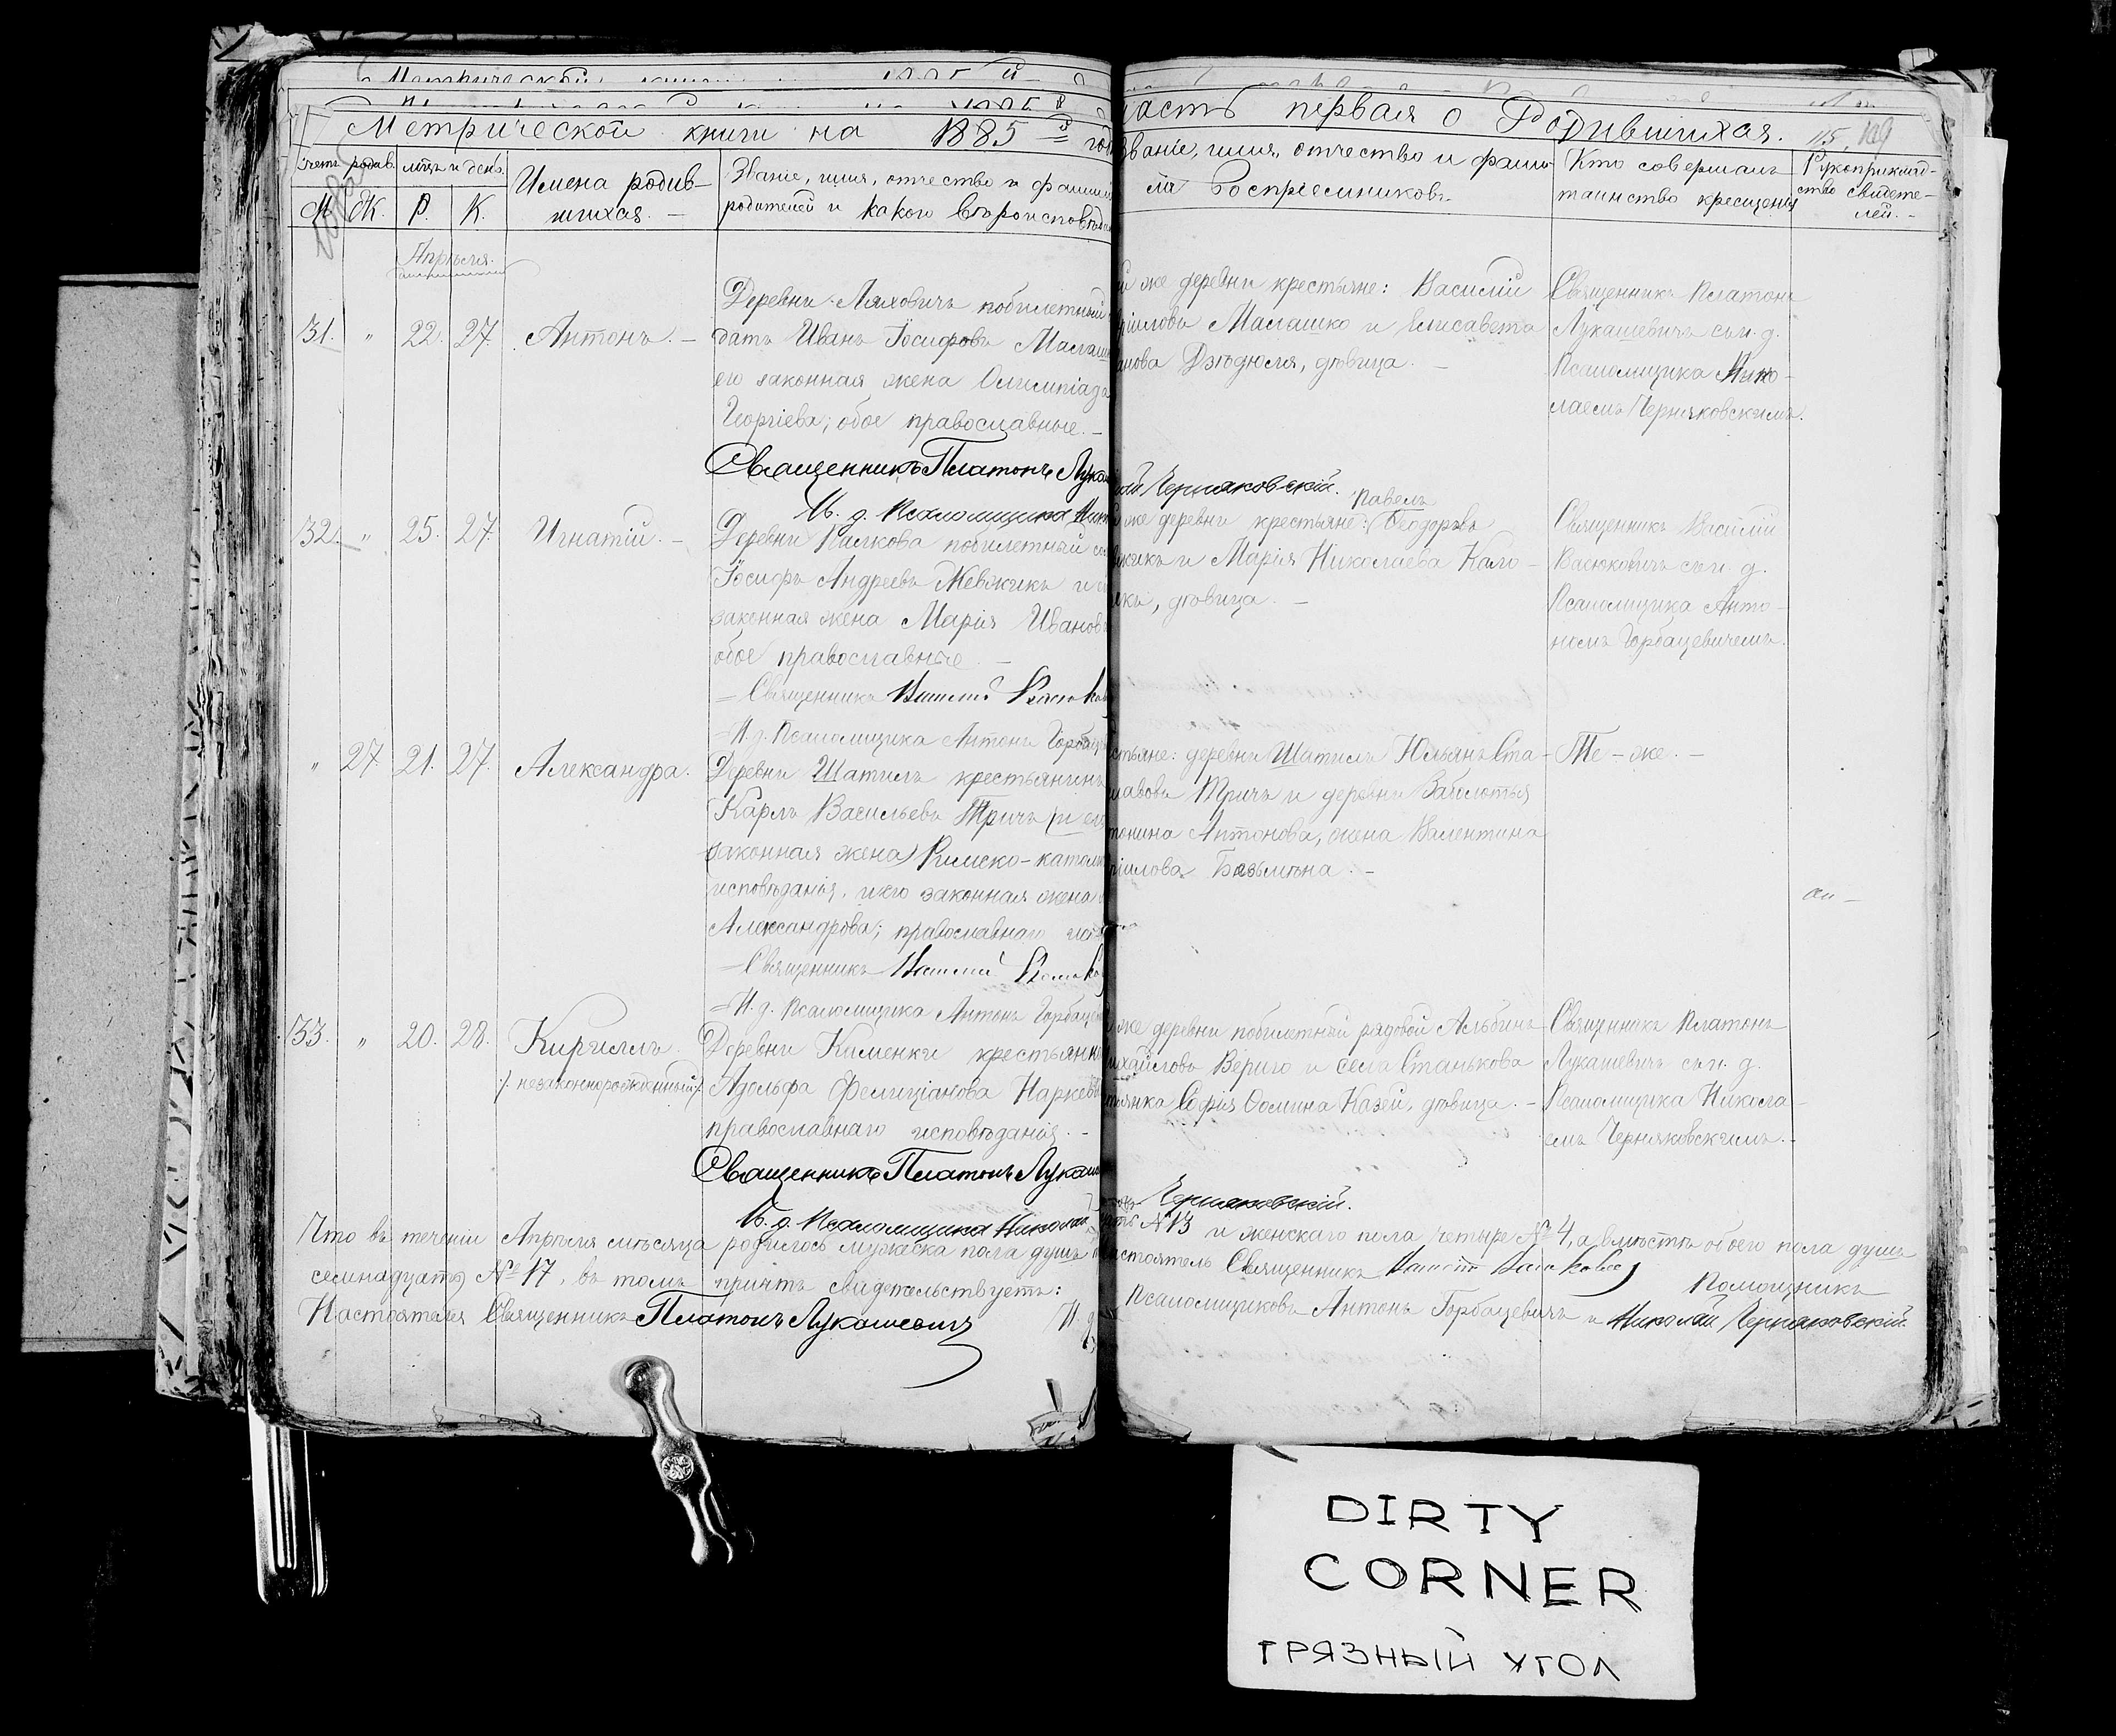 Метрической книги на 1885й годъ
часть первая о Родившихся.
115. 109
счетъ родив.
мѣсц. и день.
М. Ж. Р. К.
Имена родив-
шихся. —
Званіе, имя, отчество и фамилія
родителей и какого вѣроисповѣданія
Званіе, имя, отчество и фами-
лія Воспріемниковъ.
Кто совершалъ
таинство крещенія
Рукоприклад-
ство свидете-
лей. —
Апрѣля.
31. " 22. 27. Антонъ. —
Деревни Ляховичъ побилетный
датъ Иванъ Іосифовъ Малашко
его законная жена Олимпіада
Георгіева; обое православные. —
Священникъ Платонъ Лукаш
И. д. Псаломщика Ник
же деревни крестьяне: Василій
Малашко и Елисавета
Дзюдюля, дѣвица. —
Черняковскій.
Священникъ Платонъ
Лукашевичъ съ и. д.
Псаломщика Нико-
лаемъ Черняковскимъ.
32. " 25. 27. Игнатій. —
Деревни Палкова побилетный
Іосифъ Андреевъ Жевжикъ и
законная жена Марія Иванова
обое православные —
— Священникъ Василій
— И. д. Псаломщика Антонъ Горбац
Павелъ
же деревни крестьяне: Ѳеодоровъ
и Марія Николаева Кало-
дѣвица. —
Священникъ Василій
Васюковичъ съ и. д.
Псаломщика Анто-
номъ Горбацевичемъ.
" 27. 21. 27. Александра.
Деревни Шатилъ крестьянинъ
Карлъ Васильевъ Тричъ (и его
законная жена) Римско-катол
исповѣданія, и его законная жена
Александрова; православнаго
— Священникъ Василій
— И. д. Псаломщика Антонъ Горбац
деревни Шатилъ Юльянъ Ста-
Тричъ и деревни Заболотья
Антонова, жена Валентина
Базылюна. —
Тѣ-же. —
33. " 20. 28. Кириллъ
/: незаконнорожденный :/
Деревни Каменки крестьянка
Адольфа Фелиціанова Наркевич
православнаго исповѣданія. —
Священникъ Платонъ Лукаш
И. д. Псаломщика Николай
же деревни побилетный рядовой Альбинъ
Михайловъ Вериго и села Станькова
Софія Ѳомина Казей, дѣвица. —
Черняковскій.
Священникъ Платонъ
Лукашевичъ съ и. д.
Псаломщика Никола-
емъ Черняковскимъ. —
Что въ теченіи Апрѣля мѣсяца родилось мужеска пола душъ
№ 13 и женскаго пола четыре № 4, а вмѣстѣ обоего пола душъ
семнадцать № 17, въ томъ причтъ свидѣтельствуетъ:
Настоятель Священникъ Василій
Помощникъ
Настоятеля Священникъ Платонъ Лукашевичъ
И. д.
Псаломщиковъ Антонъ Горбацевичъ и Николай Черняковскій.
DIRTY
CORNER
ГРЯЗНЫЙ УГОЛ